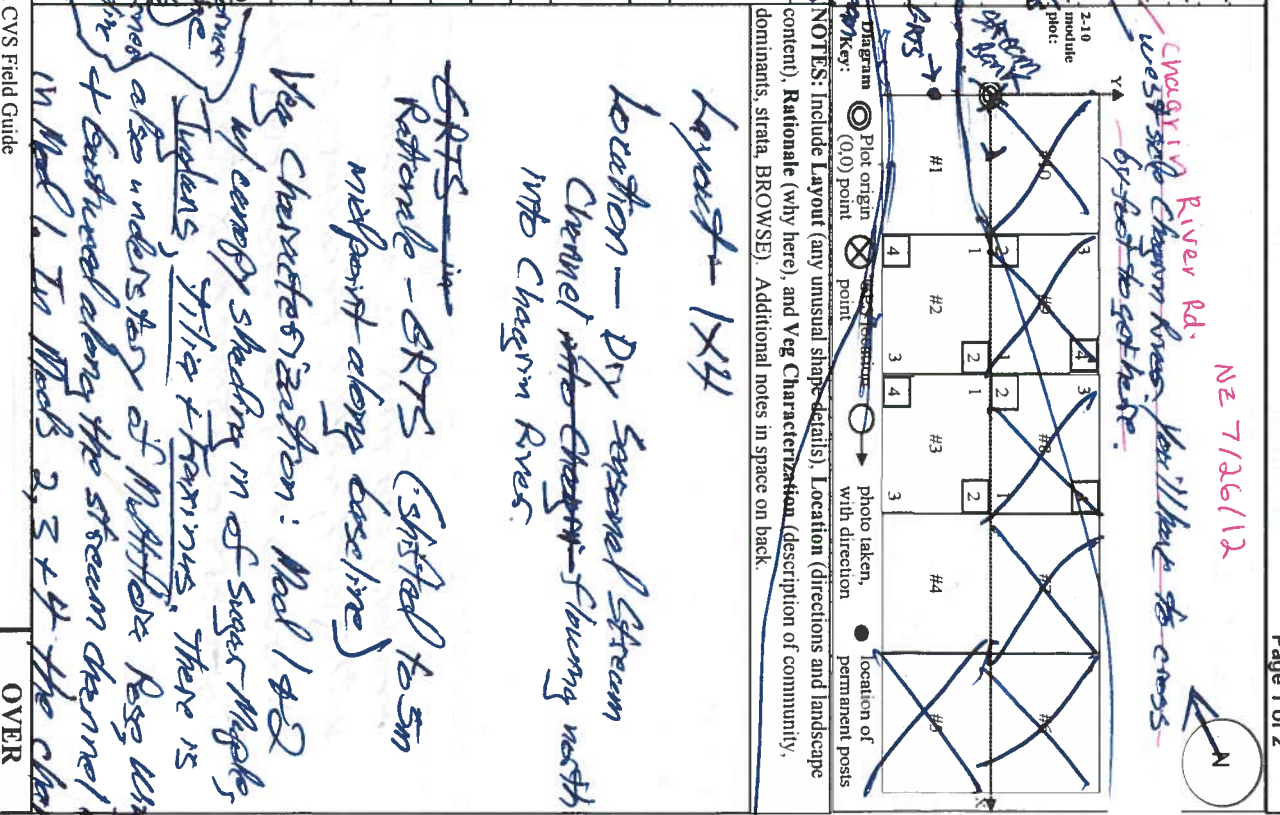 Page 1 of 2
NZ 7/26/12
Chagrin River Rd.
west side Chagrin River You'll have to cross
by foot to get here.
N
2-10
module
plot:
Y
X
GRTS
#10
#9
#8
#7
#6
#1
#2
#3
#4
#5
3
4
3
2
1
2
1
1
1
4
2
3
4
2
3
Diagram
Key:
Plot origin
(0,0) point
point
photo taken,
with direction
location of
permanent posts
NOTES: Include Layout (any unusual shape details), Location (directions and landscape
content), Rationale (why here), and Veg Characterization (description of community,
dominants, strata, BROWSE). Additional notes in space on back.
Layout - 1x4
Location - Dry Seasonal Stream
Channel into Chagrin flowing north
into Chagrin River.
GRTS in
Rationale - GRTS (shifted to 5m
midpoint along baseline)
Veg Characterization: Mod 1 & 2
w/ canopy shading in of Sugar Maples,
Juglans, Tilia + Fraxinus. There is
also understory of Multiflora Rose
+ along the stream channel
in Mod 1. In Mods 2, 3 + 4 the
CVS Field Guide
OVER